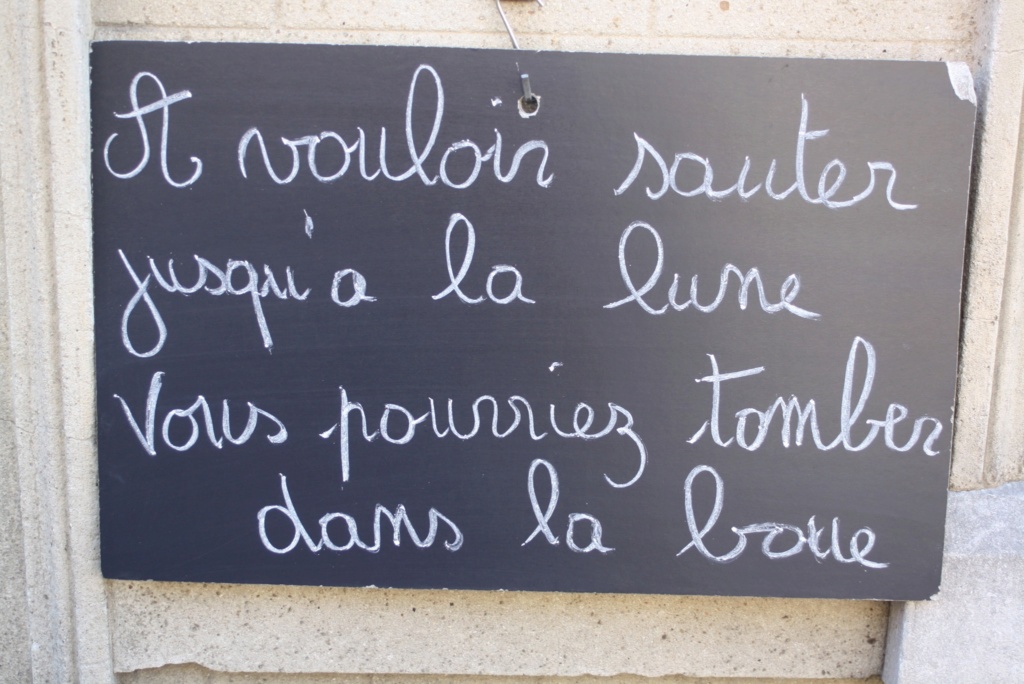 A vouloir sauter
jusqu'a la lune
Vous pourriez tomber
dans la boue